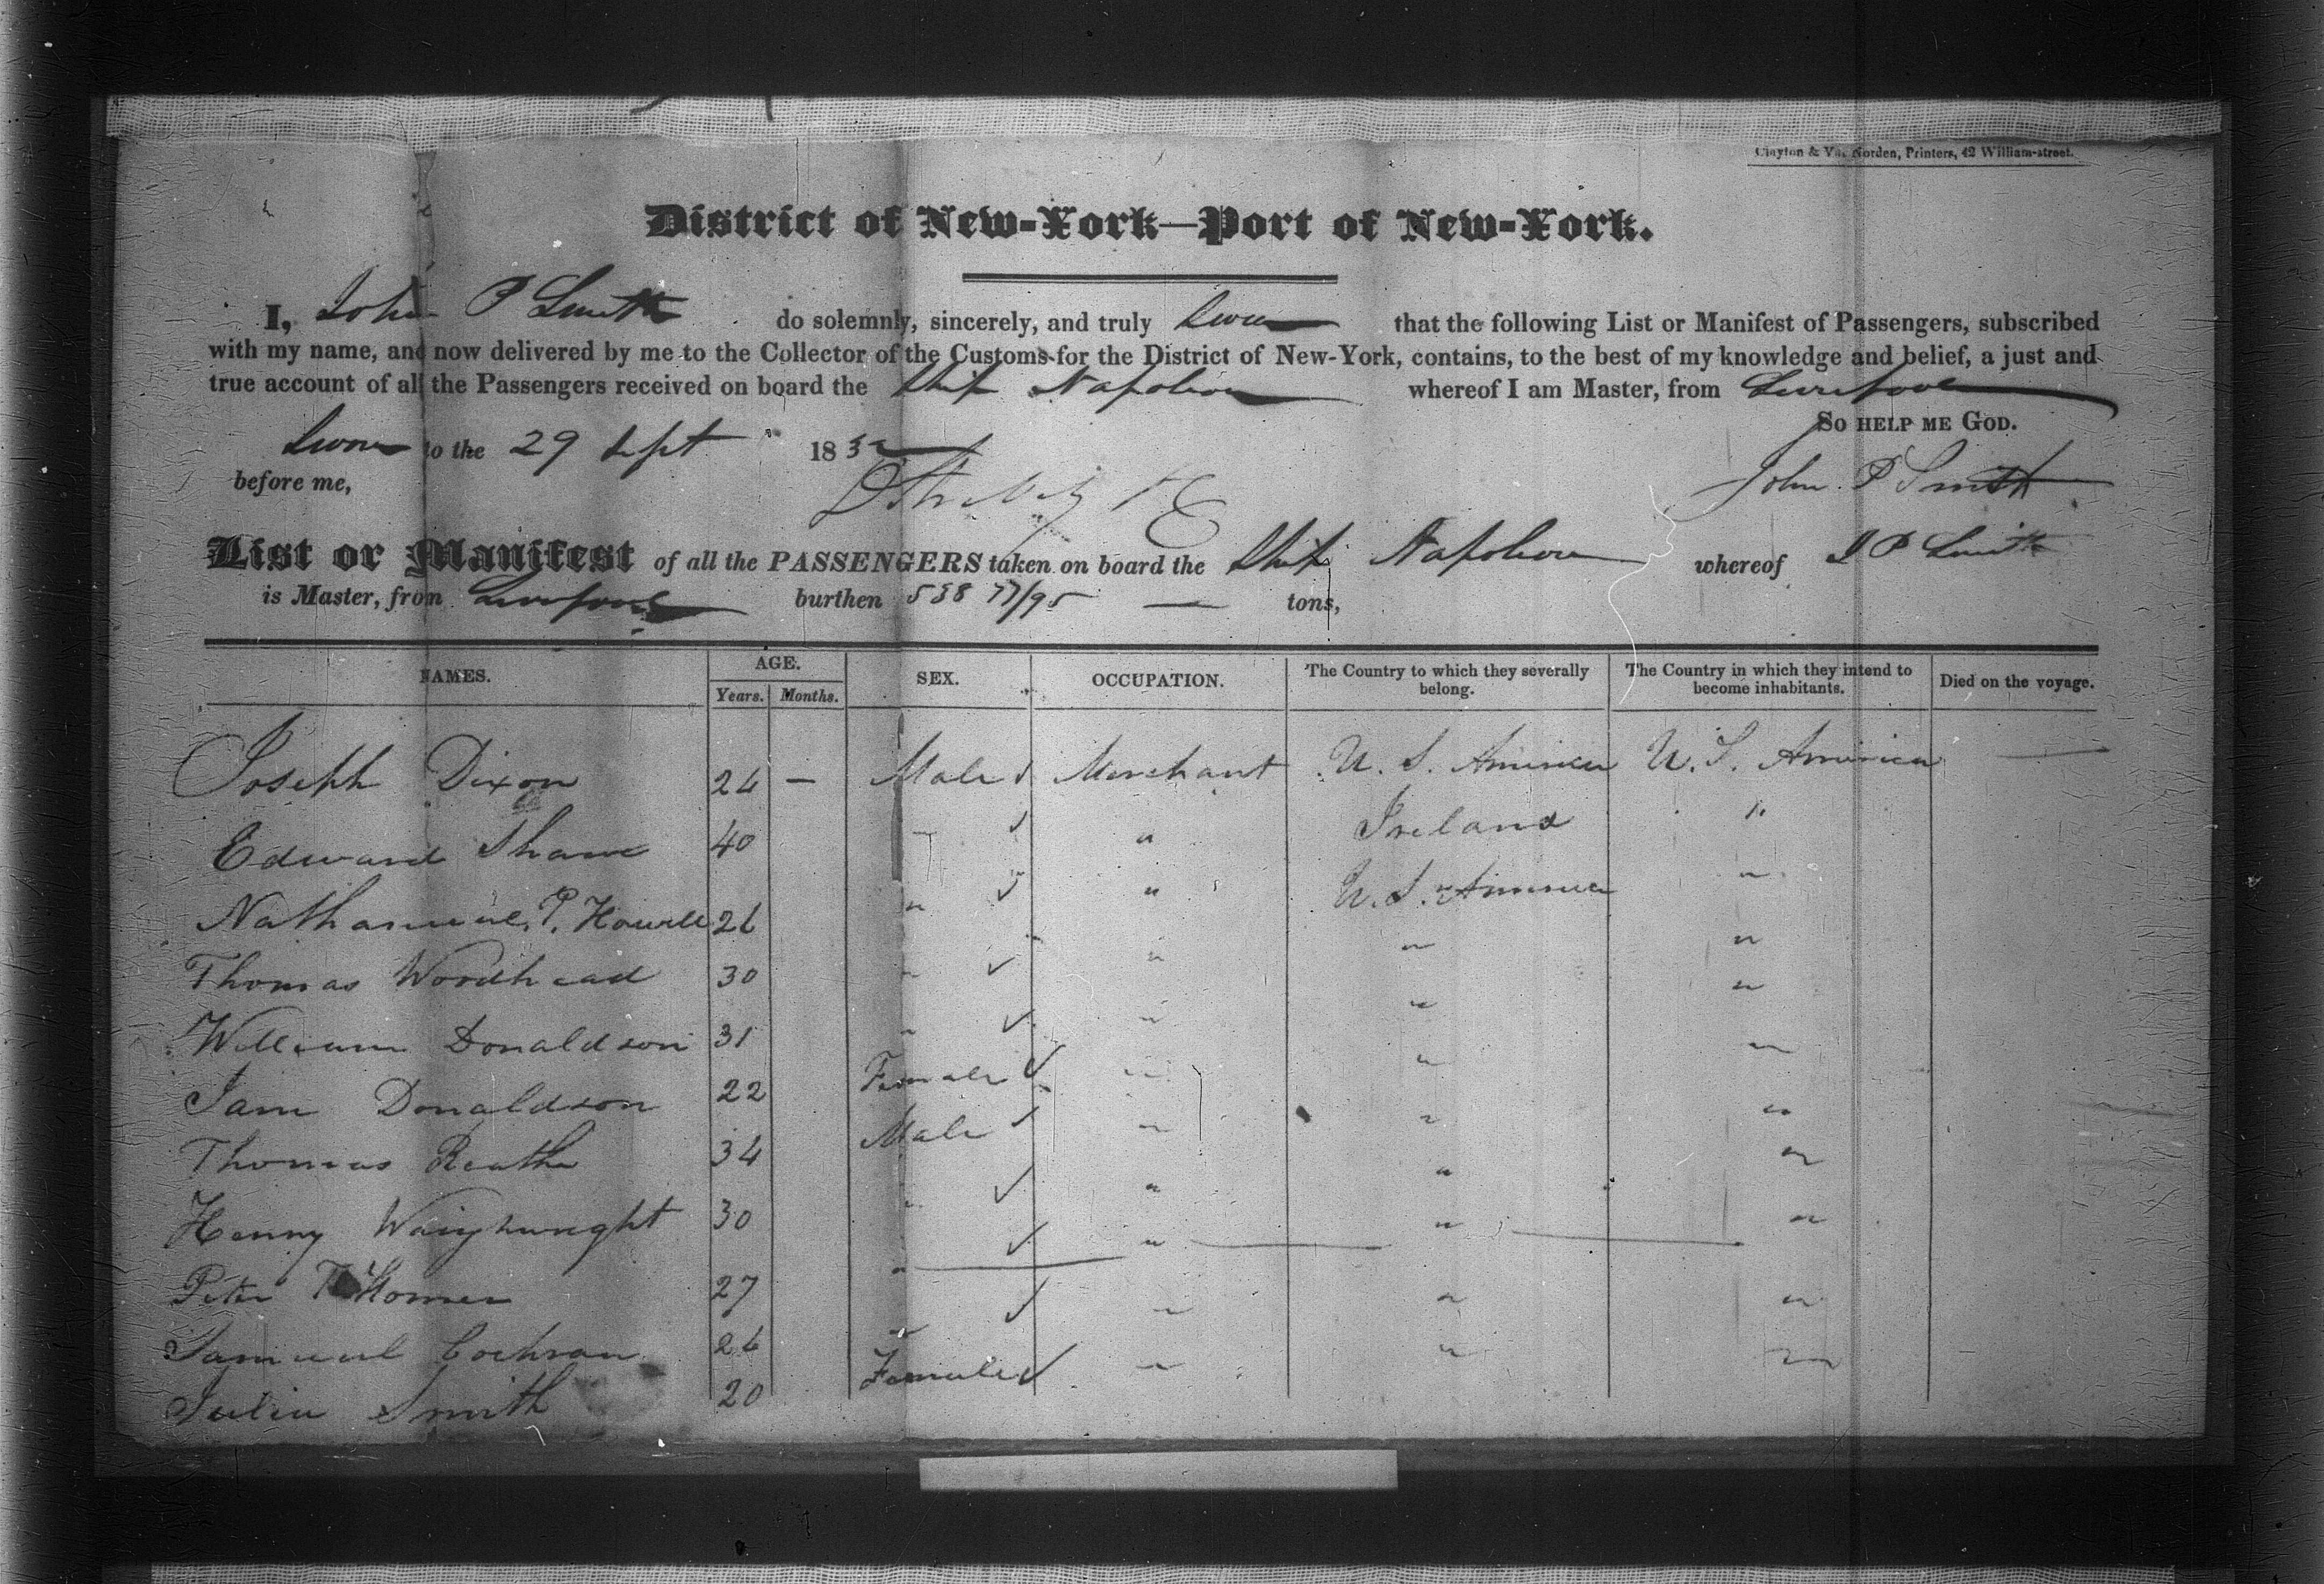 Clayton & Van Norden, Printers, 42 William-street.
District of New-York—Port of New-York.
I, John P Smith do solemnly, sincerely, and truly swear that the following List or Manifest of Passengers, subscribed
with my name, and now delivered by me to the Collector of the Customs for the District of New-York, contains, to the best of my knowledge and belief, a just and
true account of all the Passengers received on board the Ship Napoleon whereof I am Master, from Liverpool
So help me God.
Sworn to the 29 Sept 1832
before me,
John P Smith
List or Manifest of all the PASSENGERS taken on board the Ship Napoleon whereof J P Smith
is Master, from Liverpool burthen 538 77/95 — tons,
NAMES. AGE. SEX. OCCUPATION. The Country to which they severally belong. The Country in which they intend to become inhabitants. Died on the voyage.
Years. Months.
Joseph Dixon 24 — Male Merchant U. S. America U. S. America —
Edward Shaw 40 " " Ireland "
Nathaniel P. Howell 26 " " U. S. America "
Thomas Woodhead 30 " " " "
William Donaldson 31 " " " "
Jane Donaldson 22 Female " " "
Thomas 34 Male " " "
Henry Waighwright 30 " " " "
Peter Homer 27 " " " "
Samuel Cochran 26 " " " "
Julia Smith 20 Female " " "